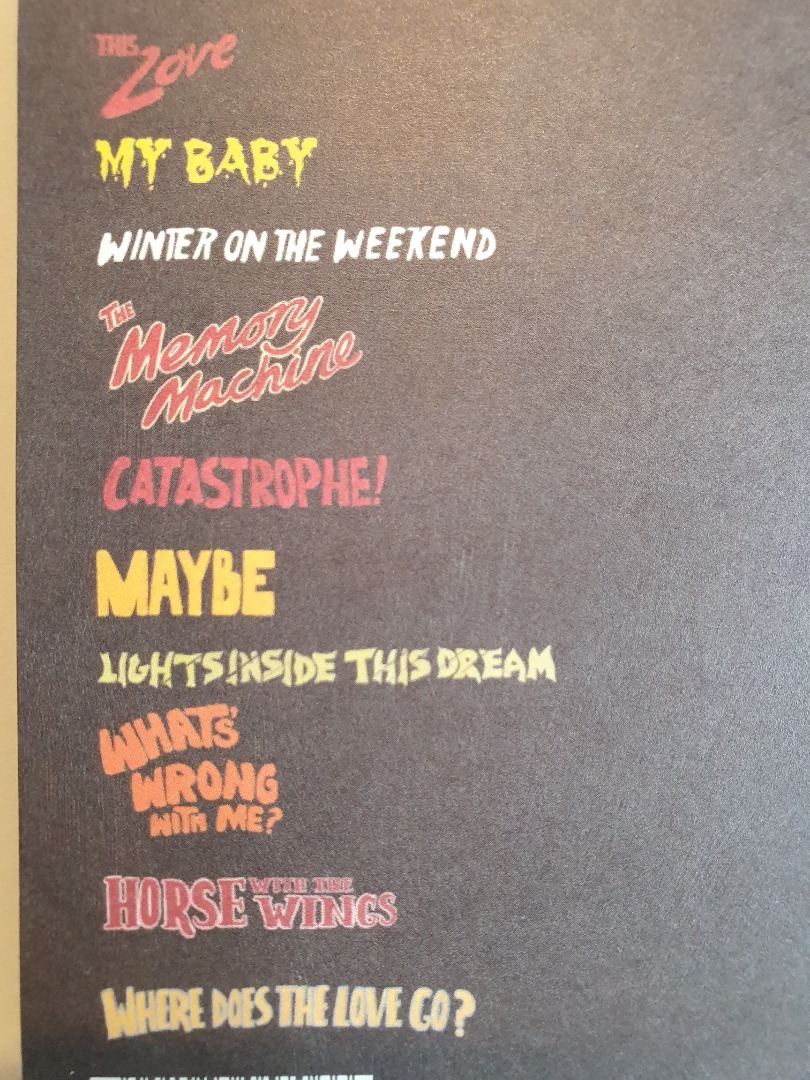 THIS
Love
MY BABY
WINTER ON THE WEEKEND
THE
Memory
Machine
CATASTROPHE!
MAYBE
LIGHTS INSIDE THIS DREAM
WHAT'S
WRONG
WITH ME?
HORSE WITH THE WINGS
WHERE DOES THE LOVE GO?